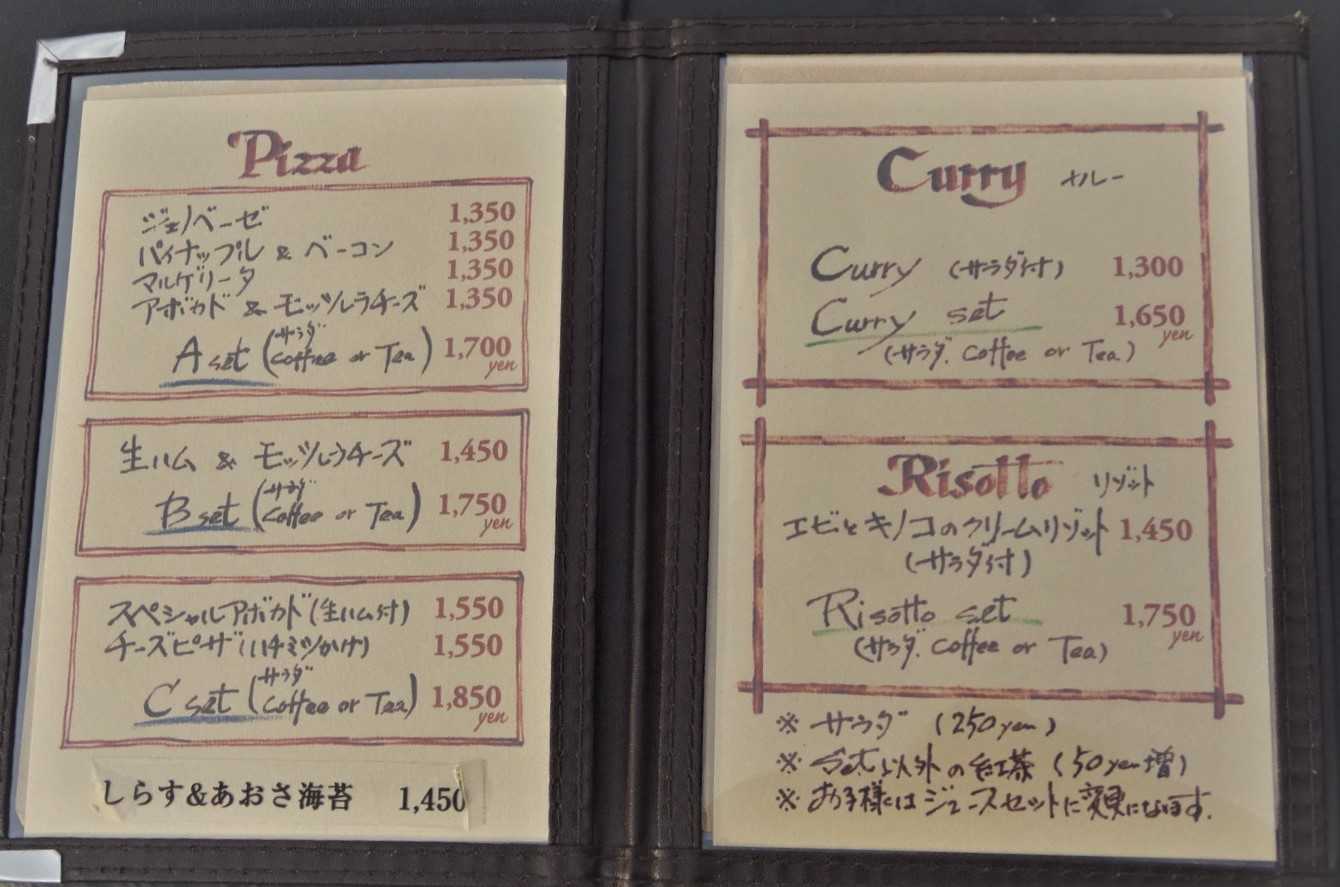 Pizza
ジェノベーゼ 1,350
パイナップル & ベーコン 1,350
マルゲリータ 1,350
アボカド & モッツレラチーズ 1,350
A set (サラダ Coffee or Tea) 1,700 yen
生ハム & モッツレラチーズ 1,450
B set (サラダ Coffee or Tea) 1,750 yen
スペシャルアボカド(生ハム付) 1,550
チーズピザ(ハチミツかけ) 1,550
C set (サラダ Coffee or Tea) 1,850 yen
しらす&あおさ海苔 1,450
Curry カレー
Curry (サラダ付) 1,300
Curry set 1,650 yen
(サラダ. Coffee or Tea)
Risotto リゾット
エビとキノコのクリームリゾット 1,450
(サラダ付)
Risotto set 1,750 yen
(サラダ. Coffee or Tea)
※ サラダ (250yen)
※ Set以外の紅茶 (50yen増)
※ お子様にはジュースセットに変更になります.